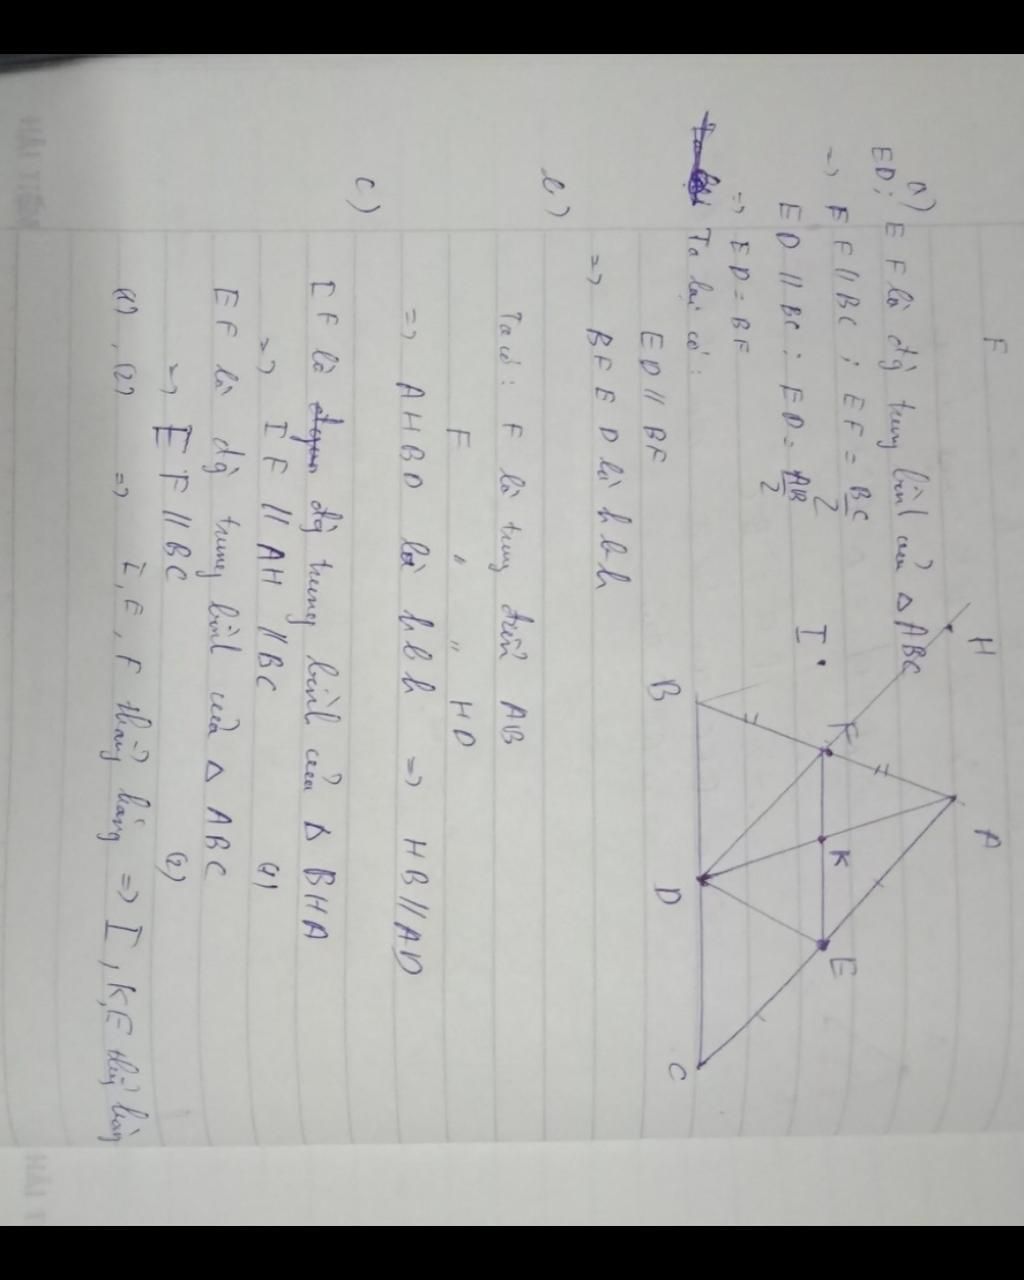 F
a) EF là đg trung bình của Δ ABC
ED;
=> EF // BC ; EF = BC/2
ED // BC ; ED = AB/2
=> ED = BF
Ta lại có :
ED // BF
=> BFED là hbh
b)
Ta có : F là trung điểm AB
F " " HD
=> AHBD là hbh => HB // AD
c)
IF là đg trung bình của Δ BHA
=> IF // AH // BC (1)
EF là đg trung bình của Δ ABC
=> EF // BC (2)
(1), (2) => I, E, F thẳng hàng => I, K, E thẳng hàng
H
A
I
F
K
E
B
D
C
HẢI TIẾN
HẢI T